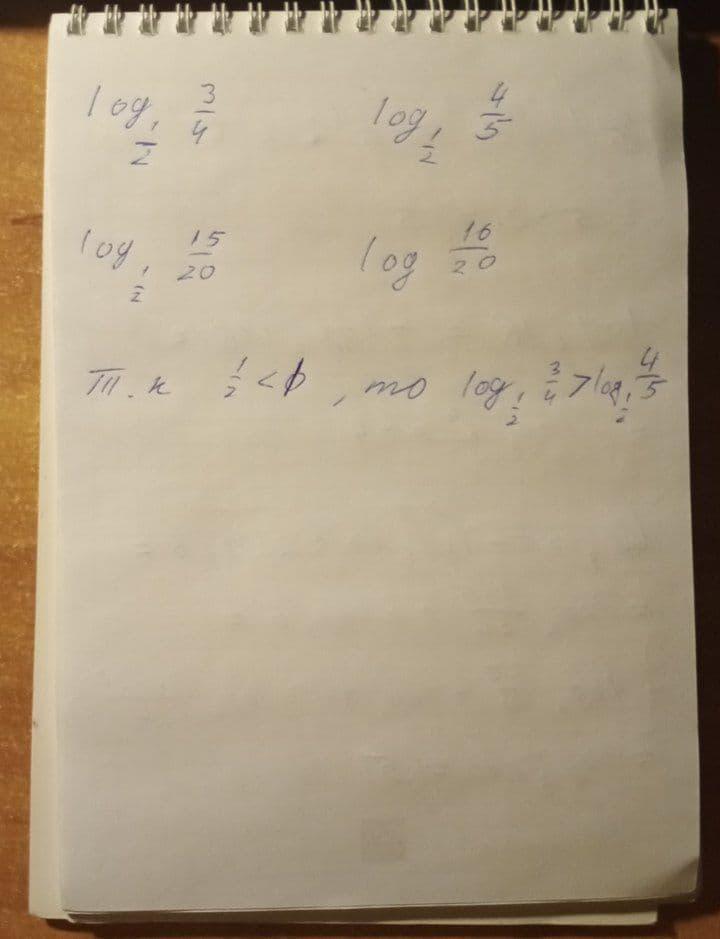 log 1/2 3/4 log 1/2 4/5
log 1/2 15/20 log 16/20
т.к 1/2 < 1, то log 1/2 3/4 > log 1/2 4/5